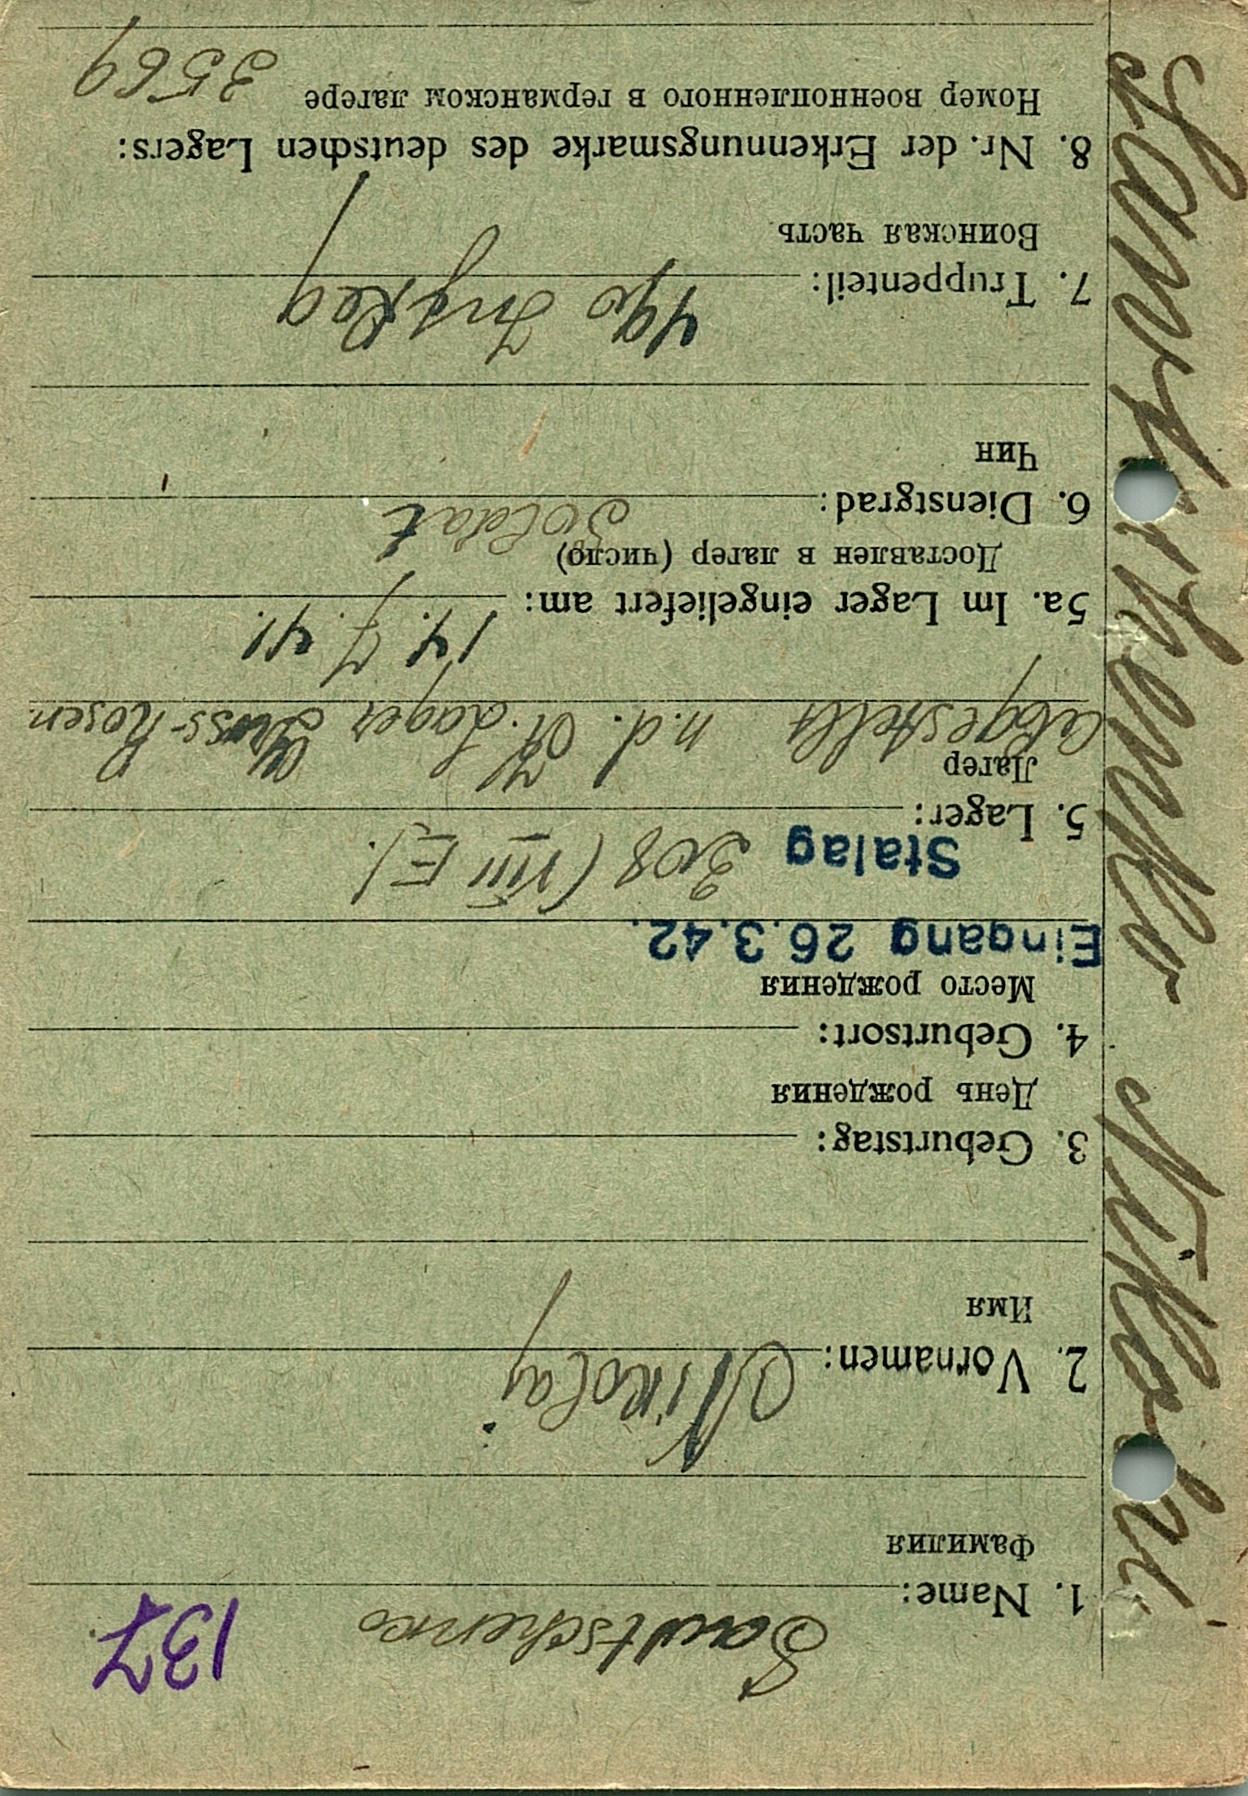 137
1. Name: Sawtschenko
Фамилия
2. Vornamen: Nikolaj
Имя
3. Geburtstag:
День рождения
4. Geburtsort:
Место рождения
Eingang 26.3.42.
Stalag 308 (VIII E).
5. Lager:
Лагер
abgestellt n.d. K. Lager Gross-Rosen
14.7.41.
5a. Im Lager eingeliefert am:
Доставлен в лагер (число)
Soldat
6. Dienstgrad:
Чин
490 Inf Reg
7. Truppenteil:
Воинская часть
8. Nr. der Erkennungsmarke des deutschen Lagers:
Номер военнопленного в германском лагере 3569
Nikolai